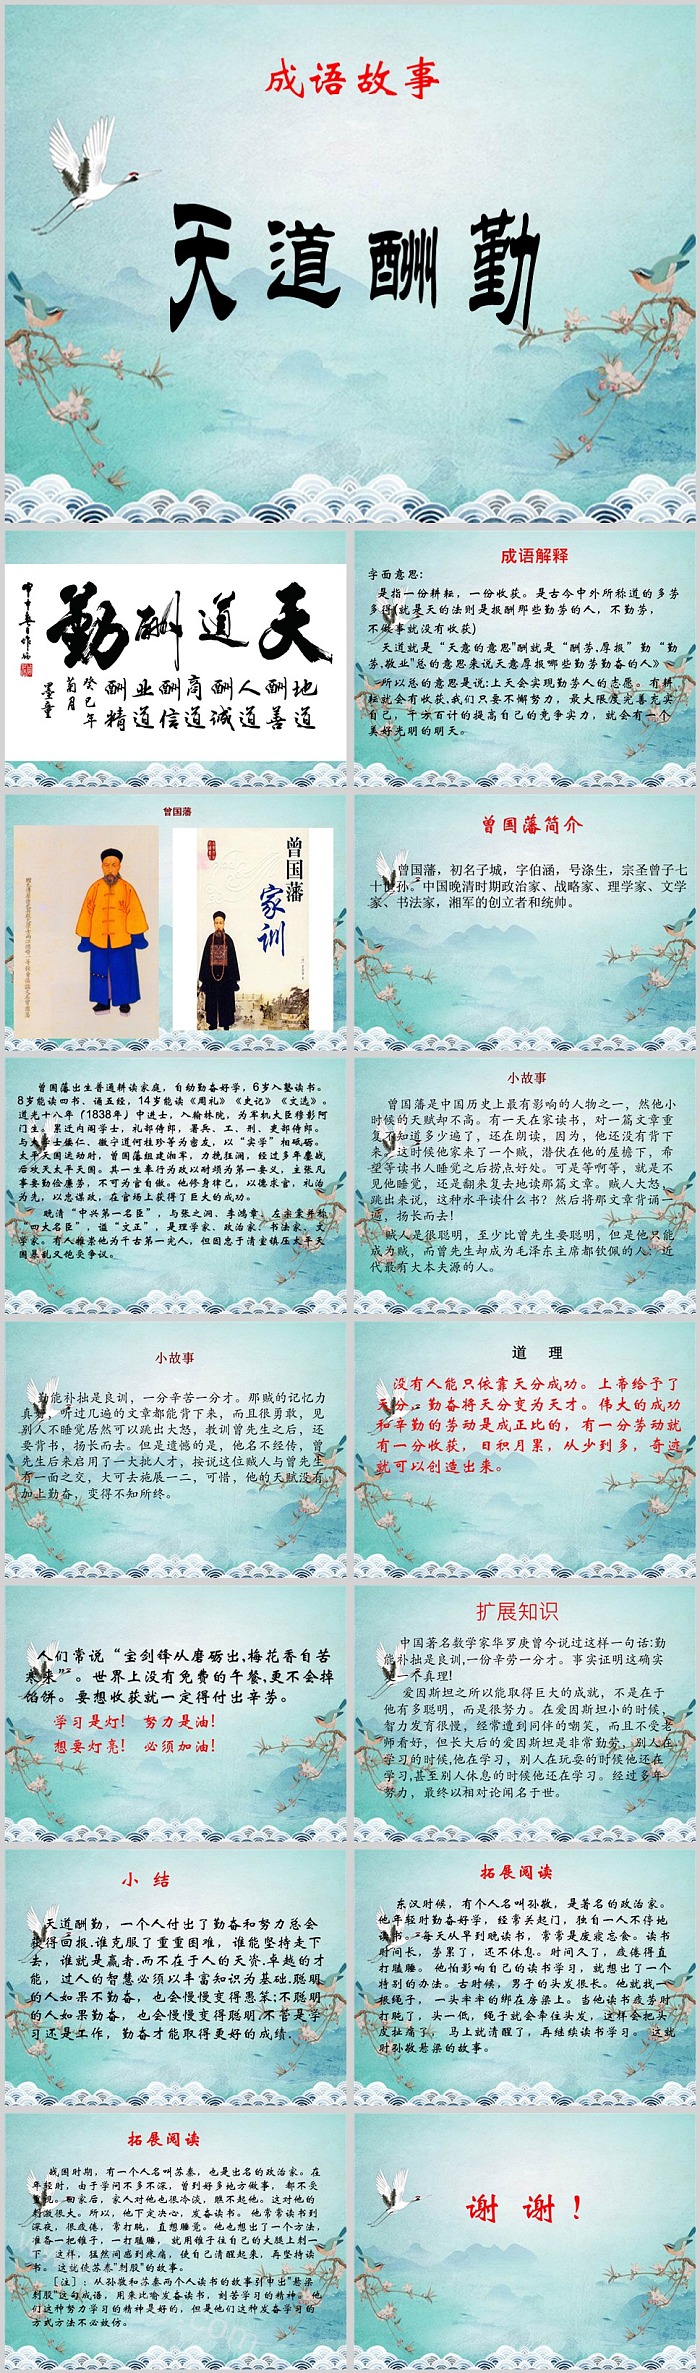 成语故事
天道酬勤
天道酬勤
地道酬善
人道酬诚
商道酬信
业道酬精
癸巳年
菊月
墨童
成语解释
字面意思:
是指一份耕耘，一份收获。是古今中外所称道的多劳
多得(就是天的法则是报酬那些勤劳的人，不勤劳，
不做事就没有收获)
天道就是“天意的意思"酬就是“酬劳,厚报” 勤“勤
劳,敬业"总的意思来说天意厚报哪些勤劳勤奋的人》、
所以总的意思是说:上天会实现勤劳人的志愿。有耕
耘就会有收获,我们只要不懈努力，最大限度完善充实
自己，千方百计的提高自己的竞争实力，就会有一个
美好光明的明天。
曾国藩
曾国藩
家训
曾国藩简介
曾国藩，初名子城，字伯涵，号涤生，宗圣曾子七
十世孙。中国晚清时期政治家、战略家、理学家、文学
家、书法家，湘军的创立者和统帅。
曾国藩出生普通耕读家庭，自幼勤奋好学，6岁入塾读书。
8岁能读四书、诵五经，14岁能读《周礼》《史记》《文选》。
道光十八年（1838年）中进士，入翰林院，为军机大臣穆彰阿
门生。累迁内阁学士，礼部侍郎，署兵、工、刑、吏部侍郎。
与大学士倭仁、徽宁道何桂珍等为密友，以“实学”相砥砺。
太平天国运动时，曾国藩组建湘军，力挽狂澜，经过多年鏖战
后攻灭太平天国。其一生奉行为政以耐烦为第一要义，主张凡
事要勤俭廉劳，不可为官自傲。他修身律己，以德求官，礼治
为先，以忠谋政，在官场上获得了巨大的成功。
晚清“中兴第一名臣”，与张之洞、李鸿章、左宗棠并称
“四大名臣”，谥“文正”，是理学家、政治家、书法家、文
学家。有人推崇他为千古第一完人，但因忠于清室镇压太平天
国暴乱又饱受争议。
小故事
曾国藩是中国历史上最有影响的人物之一，然他小
时候的天赋却不高。有一天在家读书，对一篇文章重
复不知道多少遍了，还在朗读，因为，他还没有背下
来。这时候他家来了一个贼，潜伏在他的屋檐下，希
望等读书人睡觉之后捞点好处。可是等啊等，就是不
见他睡觉，还是翻来复去地读那篇文章。贼人大怒，
跳出来说，这种水平读什么书？然后将那文章背诵一
遍，扬长而去！
贼人是很聪明，至少比曾先生要聪明，但是他只能
成为贼，而曾先生却成为毛泽东主席都钦佩的人：近
代最有大本夫源的人。
小故事
勤能补拙是良训，一分辛苦一分才。那贼的记忆力
真好，听过几遍的文章都能背下来，而且很勇敢，见
别人不睡觉居然可以跳出大怒，教训曾先生之后，还
要背书，扬长而去。但是遗憾的是，他名不经传，曾
先生后来启用了一大批人才，按说这位贼人与曾先生
有一面之交，大可去施展一二，可惜，他的天赋没有
加上勤奋，变得不知所终。
道 理
没有人能只依靠天分成功。上帝给予了
天分，勤奋将天分变为天才。伟大的成功
和辛勤的劳动是成正比的，有一分劳动就
有一分收获，日积月累，从少到多，奇迹
就可以创造出来。
人们常说“宝剑锋从磨砺出,梅花香自苦
寒来”。世界上没有免费的午餐,更不会掉
馅饼。要想收获就一定得付出辛劳。
学习是灯！努力是油！
想要灯亮！必须加油！
扩展知识
中国著名数学家华罗庚曾今说过这样一句话:勤
能补拙是良训,一份辛劳一分才。事实证明这确实
一个真理!
爱因斯坦之所以能取得巨大的成就，不是在于
他有多聪明，而是很努力。在爱因斯坦小的时候，
智力发育很慢，经常遭到同伴的嘲笑，而且不受老
师看好，但长大后的爱因斯坦是非常勤劳，别人在
学习的时候,他在学习，别人在玩耍的时候他还在
学习,甚至别人休息的时候他还在学习。经过多年
努力，最终以相对论闻名于世。
小 结
天道酬勤，一个人付出了勤奋和努力总会
获得回报.谁克服了重重困难，谁能坚持走下
去，谁就是赢者.而不在于人的天资.卓越的才
能，过人的智慧必须以丰富知识为基础.聪明
的人如果不勤奋，也会慢慢变得愚笨;不聪明
的人如果勤奋，也会慢慢变得聪明.不管是学
习还是工作，勤奋才能取得更好的成绩.
拓展阅读
东汉时候，有个人名叫孙敬，是著名的政治家。
他年轻时勤奋好学，经常关起门，独自一人不停地
读书。每天从早到晚读书，常常是废寝忘食。读书
时间长，劳累了，还不休息。时间久了，疲倦得直
打瞌睡。他怕影响自己的读书学习，就想出了一个
特别的办法。古时候，男子的头发很长。他就找一
根绳子，一头牢牢的绑在房梁上。当他读书疲劳时
打盹了，头一低，绳子就会牵住头发，这样会把头
皮扯痛了，马上就清醒了，再继续读书学习。这就
时孙敬悬梁的故事。
拓展阅读
战国时期，有一个人名叫苏秦，也是出名的政治家。在
年轻时，由于学问不多不深，曾到好多地方做事，都不受
重视。回家后，家人对他也很冷淡，瞧不起他。这对他的
刺激很大。所以，他下定决心，发奋读书。他常常读书到
深夜，很疲倦，常打盹，直想睡觉。他也想出了一个方法，
准备一把锥子，一打瞌睡，就用锥子往自己的大腿上刺一
下。这样，猛然间感到疼痛，使自己清醒起来，再坚持读
书。这就使苏秦"刺股"的故事。
［注］：从孙敬和苏秦两个人读书的故事引申出"悬梁
刺股"这句成语，用来比喻发奋读书，刻苦学习的精神。他
们这种努力学习的精神是好的，但是他们这种发奋学习的
方式方法不必效仿。
谢谢！